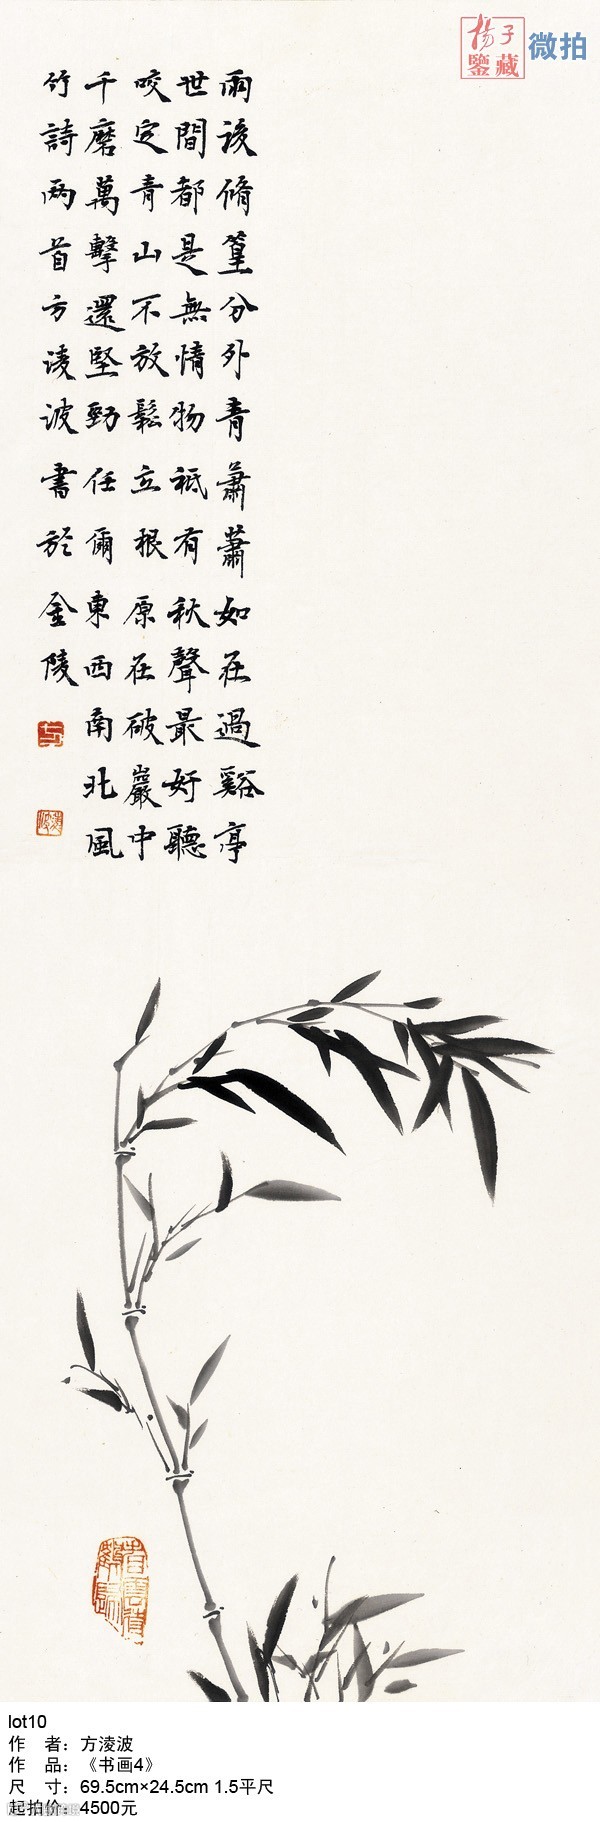 楊子
鑒藏
微拍
雨後脩篁分外青蕭蕭如在過谿亭
世間都是無情物祗有秋聲最好聽
咬定青山不放鬆立根原在破巖中
千磨萬擊還堅勁任爾東西南北風
竹詩兩首方淩波書於金陵
lot10
作 者：方淩波
作 品：《书画4》
尺 寸：69.5cm×24.5cm 1.5平尺
起拍价：4500元